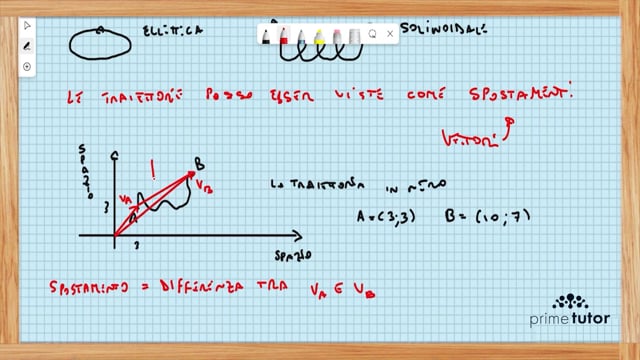 ELLITTICA
SOLINOIDALE
LE TRAIETTORIE POSSO ESSER VISTE COME SPOSTAMENTI
VETTORI
SPAZIO
B
V_A
V_B
A
3
3
SPAZIO
LA TRAIETTORIA IN NERO
A=(3;3) B=(10;7)
SPOSTAMENTO = DIFFERENZA TRA V_A E V_B
prime tutor